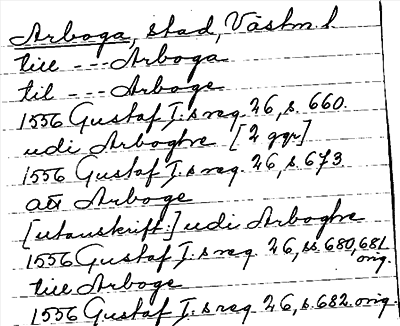 Arboga, stad, Västm. l
till --- Arboga
til --- Arboge
1556 Gustaf I:s reg. 26, s. 660.
udi Arboghe [2 ggr]
1556 Gustaf I:s reg. 26, s. 673
att Arboge
[utanskrift:] udi Arboghe
1556 Gustaf I:s reg. 26, ss. 680, 681 orig.
till Arboge
1556 Gustaf I:s reg. 26, s. 682. orig.